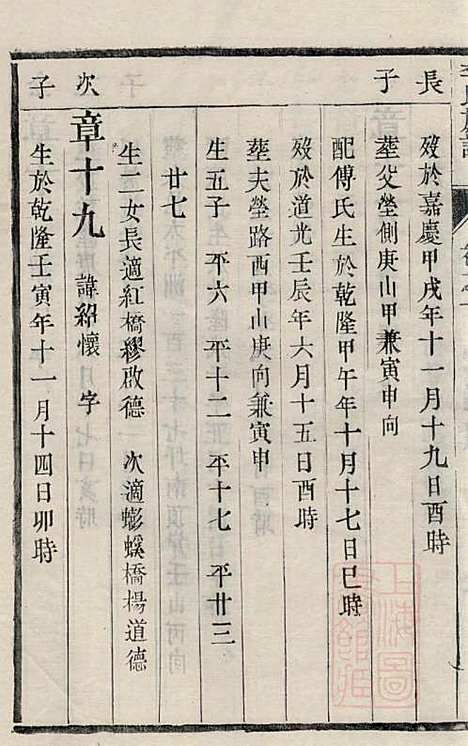 長子
歿於嘉慶甲戌年十一月十九日酉時
塟父塋側庚山甲兼寅申向
配傅氏生於乾隆甲午年十月十七日巳時
歿於道光壬辰年六月十五日酉時
塟夫塋路西甲山庚向兼寅申
生五子 平六 平十二 平十七 平廿三
廿七
生二女長適紅橋繆啟德 次適蟛蟆橋楊道德
次子
章十九 諱紹懷 字
生於乾隆壬寅年十一月十四日卯時